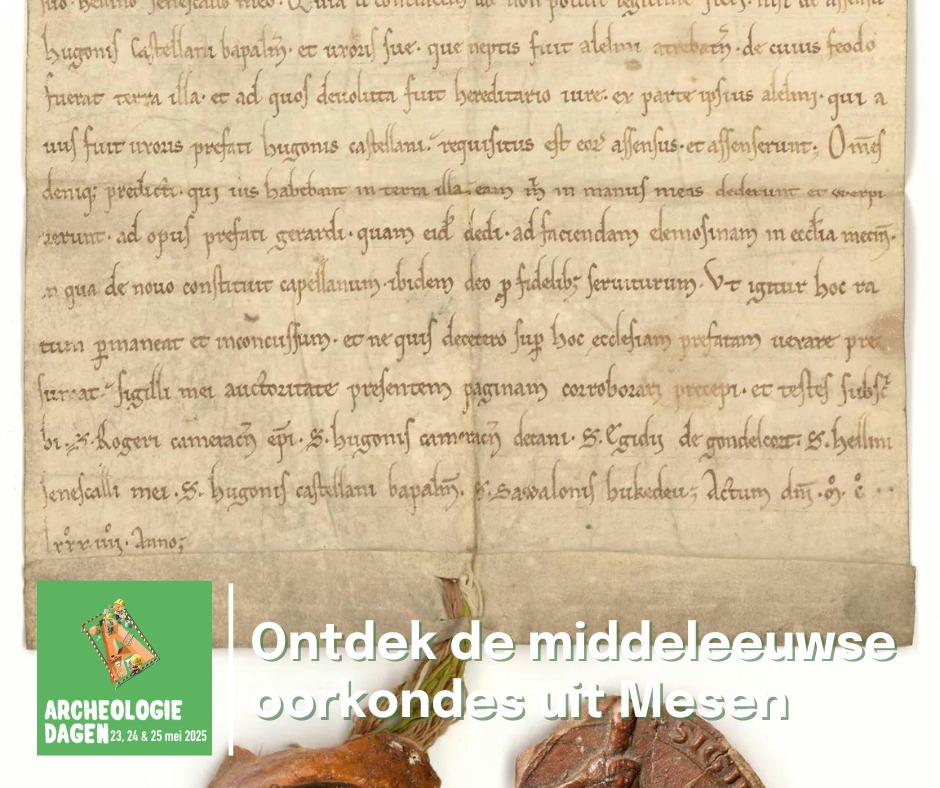 hugonis castellani bapalm̄. et uxoris sue. que neptis fuit alelmi atrebatn̄. de cuius feodo
fuerat terra illa. et ad quos deuoluta fuit hereditario iure. ex parte ipsius alelmi. qui a
uus fuit uxoris prefati hugonis castellani. requisitus est eorꝰ assensus. et assenserunt. Om̄es
deniqꝫ predicti. qui ius habebant in terra illa. eam in manus meas dederunt et werpi
uerunt. ad opus prefati gerardi. quam eid̄ dedi. ad faciendam elemosinam in ecclia
in qua de nouo constituit capellanum. ibidem deo ꝓ fidelibꝫ seruiturum. Vt igitur hoc ra
tum ꝑmaneat et inconcussum. et ne quis decetero sup̱ hoc ecclesiam prefatam uexare pre
sumat. sigilli mei auctoritate presentem paginam corroborari precepi. et testes subsc̄
bi. S. Rogeri cameracn̄ ep̄i. S. hugonis cameracn̄ decani. S. Egidij de S. hellini
senescalli mei. S. hugonis castellani bapalm̄. S. Sawalonis hukedeu. Actum dn̄i. oͦ. m̊. c̊
lxxx iiii. Anno;
ARCHEOLOGIE
DAGEN 23, 24 & 25 mei 2025
Ontdek de middeleeuwse
oorkondes uit Mesen
SIGI